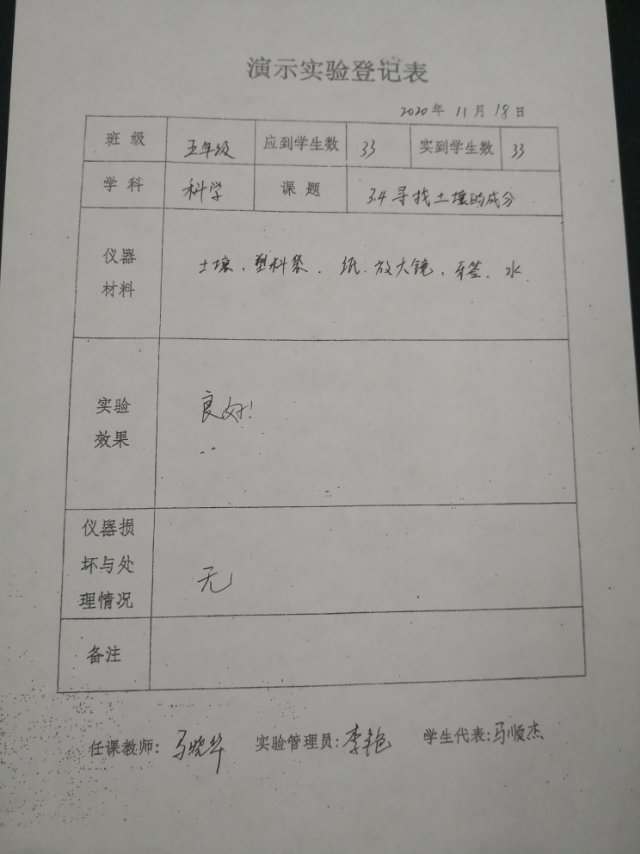 演示实验登记表
2020年11月18日
班级 五年级 应到学生数 33 实到学生数 33
学科 科学 课题 3.4寻找土壤的成分
仪器
材料
土壤、塑料袋、纸、放大镜、牙签、水
实验
效果
良好!
仪器损
坏与处
理情况
无
备注
任课教师: 马晓华 实验管理员: 李艳 学生代表: 马顺杰